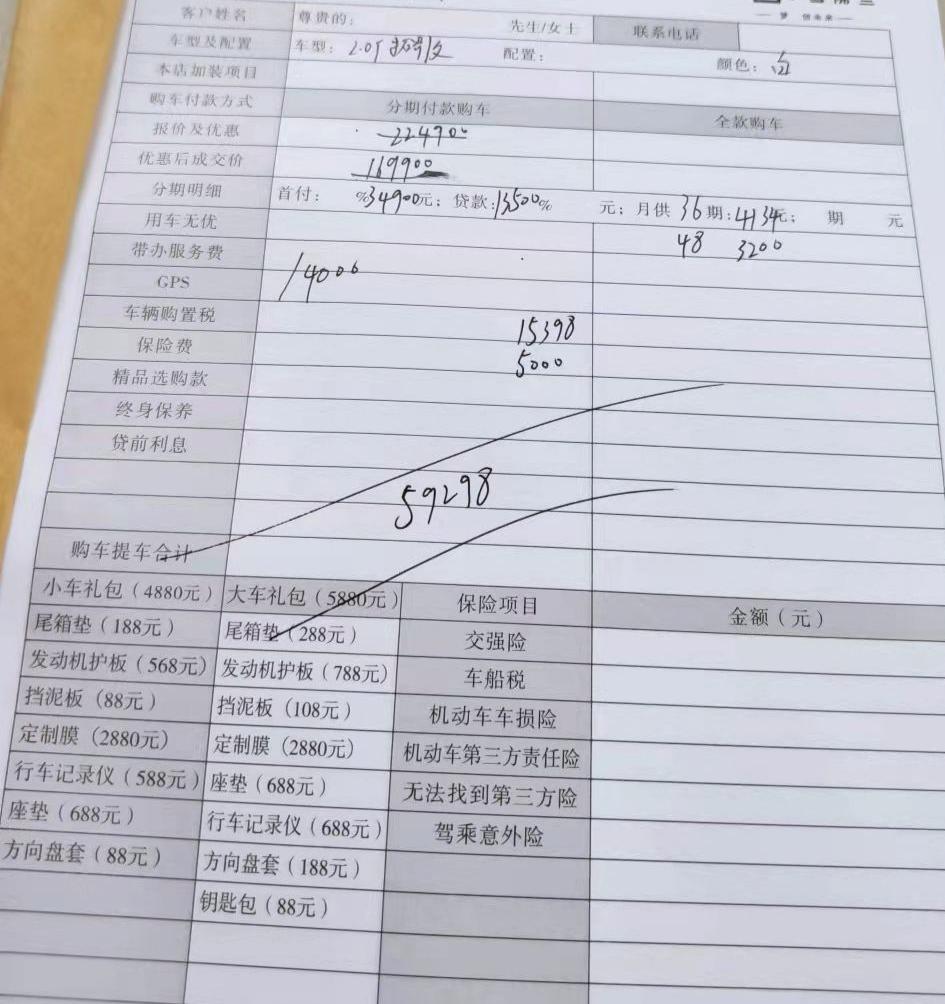 客户姓名 尊贵的： 先生/女士 联系电话
车型及配置 车型：2.0T 配置： 颜色：白
本店加装项目
购车付款方式 分期付款购车 全款购车
报价及优惠 224900
优惠后成交价 169900
分期明细 首付： %34900元；贷款：13500% 元；月供 36期：4134元； 期 元
用车无优 48 3200
带办服务费
GPS /4000
车辆购置税 15398
保险费 5000
精品选购款
终身保养
贷前利息
59298
购车提车合计
小车礼包（4880元） 大车礼包（5880元） 保险项目 金额（元）
尾箱垫（188元） 尾箱垫（288元） 交强险
发动机护板（568元） 发动机护板（788元） 车船税
挡泥板（88元） 挡泥板（108元） 机动车车损险
定制膜（2880元） 定制膜（2880元） 机动车第三方责任险
行车记录仪（588元） 座垫（688元） 无法找到第三方险
座垫（688元） 行车记录仪（688元） 驾乘意外险
方向盘套（88元） 方向盘套（188元）
钥匙包（88元）